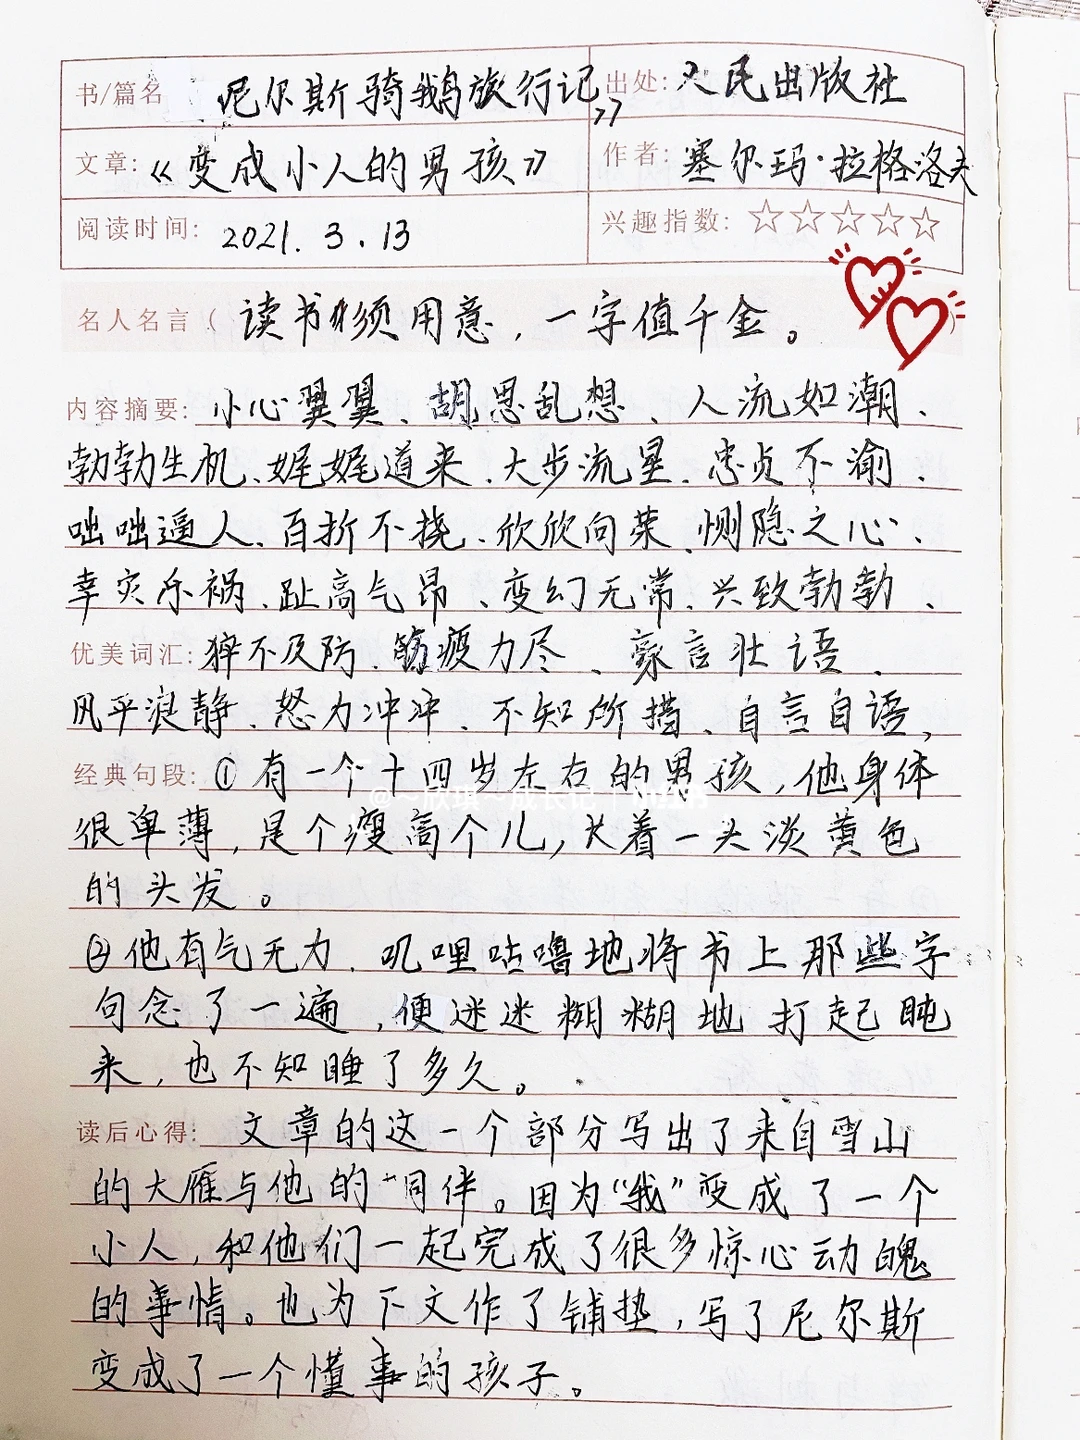 书/篇名 尼尔斯骑鹅旅行记》 出处: 人民出版社
文章: 《变成小人的男孩》 作者: 塞尔玛·拉格洛夫
阅读时间: 2021.3.13 兴趣指数: ☆☆☆☆☆
名人名言( 读书须用意，一字值千金。 )
内容摘要: 小心翼翼、胡思乱想、人流如潮、
勃勃生机、娓娓道来、大步流星、忠贞不渝、
咄咄逼人、百折不挠、欣欣向荣、恻隐之心、
幸灾乐祸、趾高气昂、变幻无常、兴致勃勃、
优美词汇: 猝不及防、筋疲力尽、豪言壮语、
风平浪静、怒力冲冲、不知所措、自言自语，
经典句段: ①有一个十四岁左右的男孩，他身体
@~欣琪~成长记 小红书
很单薄，是个瘦高个儿，长着一头淡黄色
的头发。
②他有气无力、叽哩咕噜地将书上那些字
句念了一遍，便迷迷糊糊地打起盹
来，也不知睡了多久。
读后心得: 文章的这一个部分写出了来自雪山
的大雁与他的“同伴。因为“我”变成了一个
小人，和他们一起完成了很多惊心动魄
的事情。也为下文作了铺垫，写了尼尔斯
变成了一个懂事的孩子。